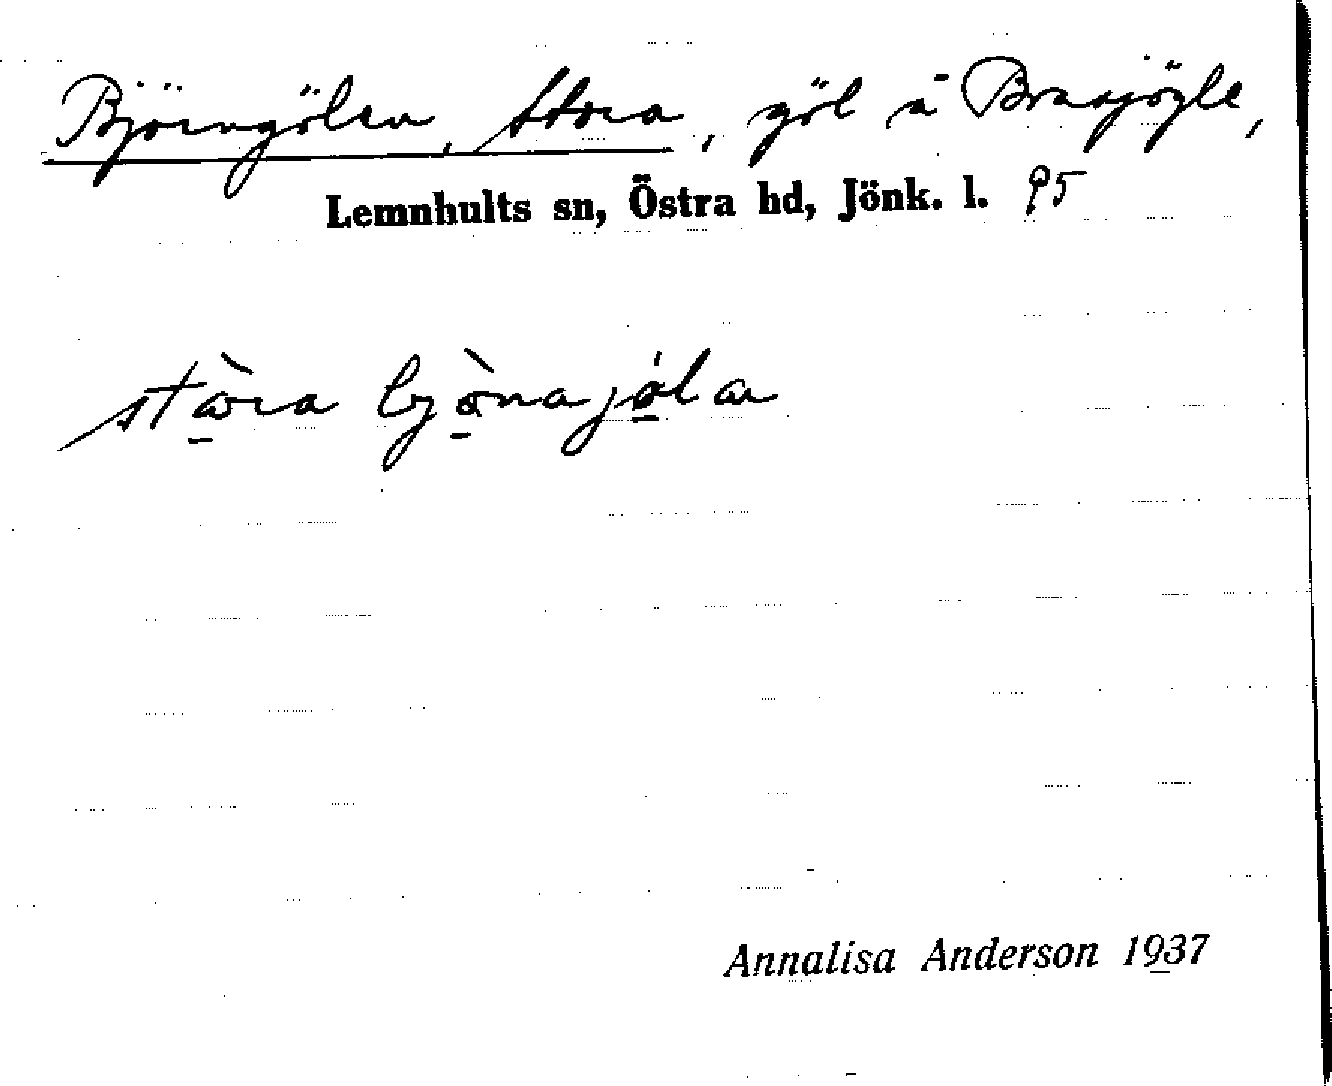 Björngölen, Stora, göl i Brusjögle,
Lemnhults sn, Östra hd, Jönk. l. 95
stora bjönajöla
Annalisa Anderson 1937